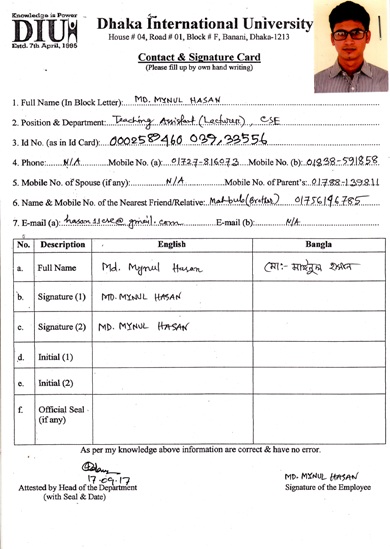 Knowledge is Power
DIU
Estd. 7th April, 1995
Dhaka International University
House # 04, Road # 01, Block # F, Banani, Dhaka-1213
Contact & Signature Card
(Please fill up by own hand writing)
1. Full Name (In Block Letter): MD. MYNUL HASAN
2. Position & Department: Teaching Assistant (Lecturer), CSE
3. Id No. (as in Id Card): 0002589460 039,33556
4. Phone: N/A Mobile No. (a): 01727-816073 Mobile No. (b): 01838-591858
5. Mobile No. of Spouse (if any): N/A Mobile No. of Parent's: 01788-139811
6. Name & Mobile No. of the Nearest Friend/Relative: Mahbub (Brother) 01756196785
7. E-mail (a): @gmail.com E-mail (b): N/A
No. Description English Bangla
a. Full Name Md. Mynul Hasan মো:- মাইনুল হাসান
b. Signature (1) MD. MYNUL HASAN
c. Signature (2) MD. MYNUL HASAN
d. Initial (1)
e. Initial (2)
f. Official Seal (if any)
As per my knowledge above information are correct & have no error.
17-09-17
Attested by Head of the Department
(with Seal & Date)
MD. MYNUL HASAN
Signature of the Employee